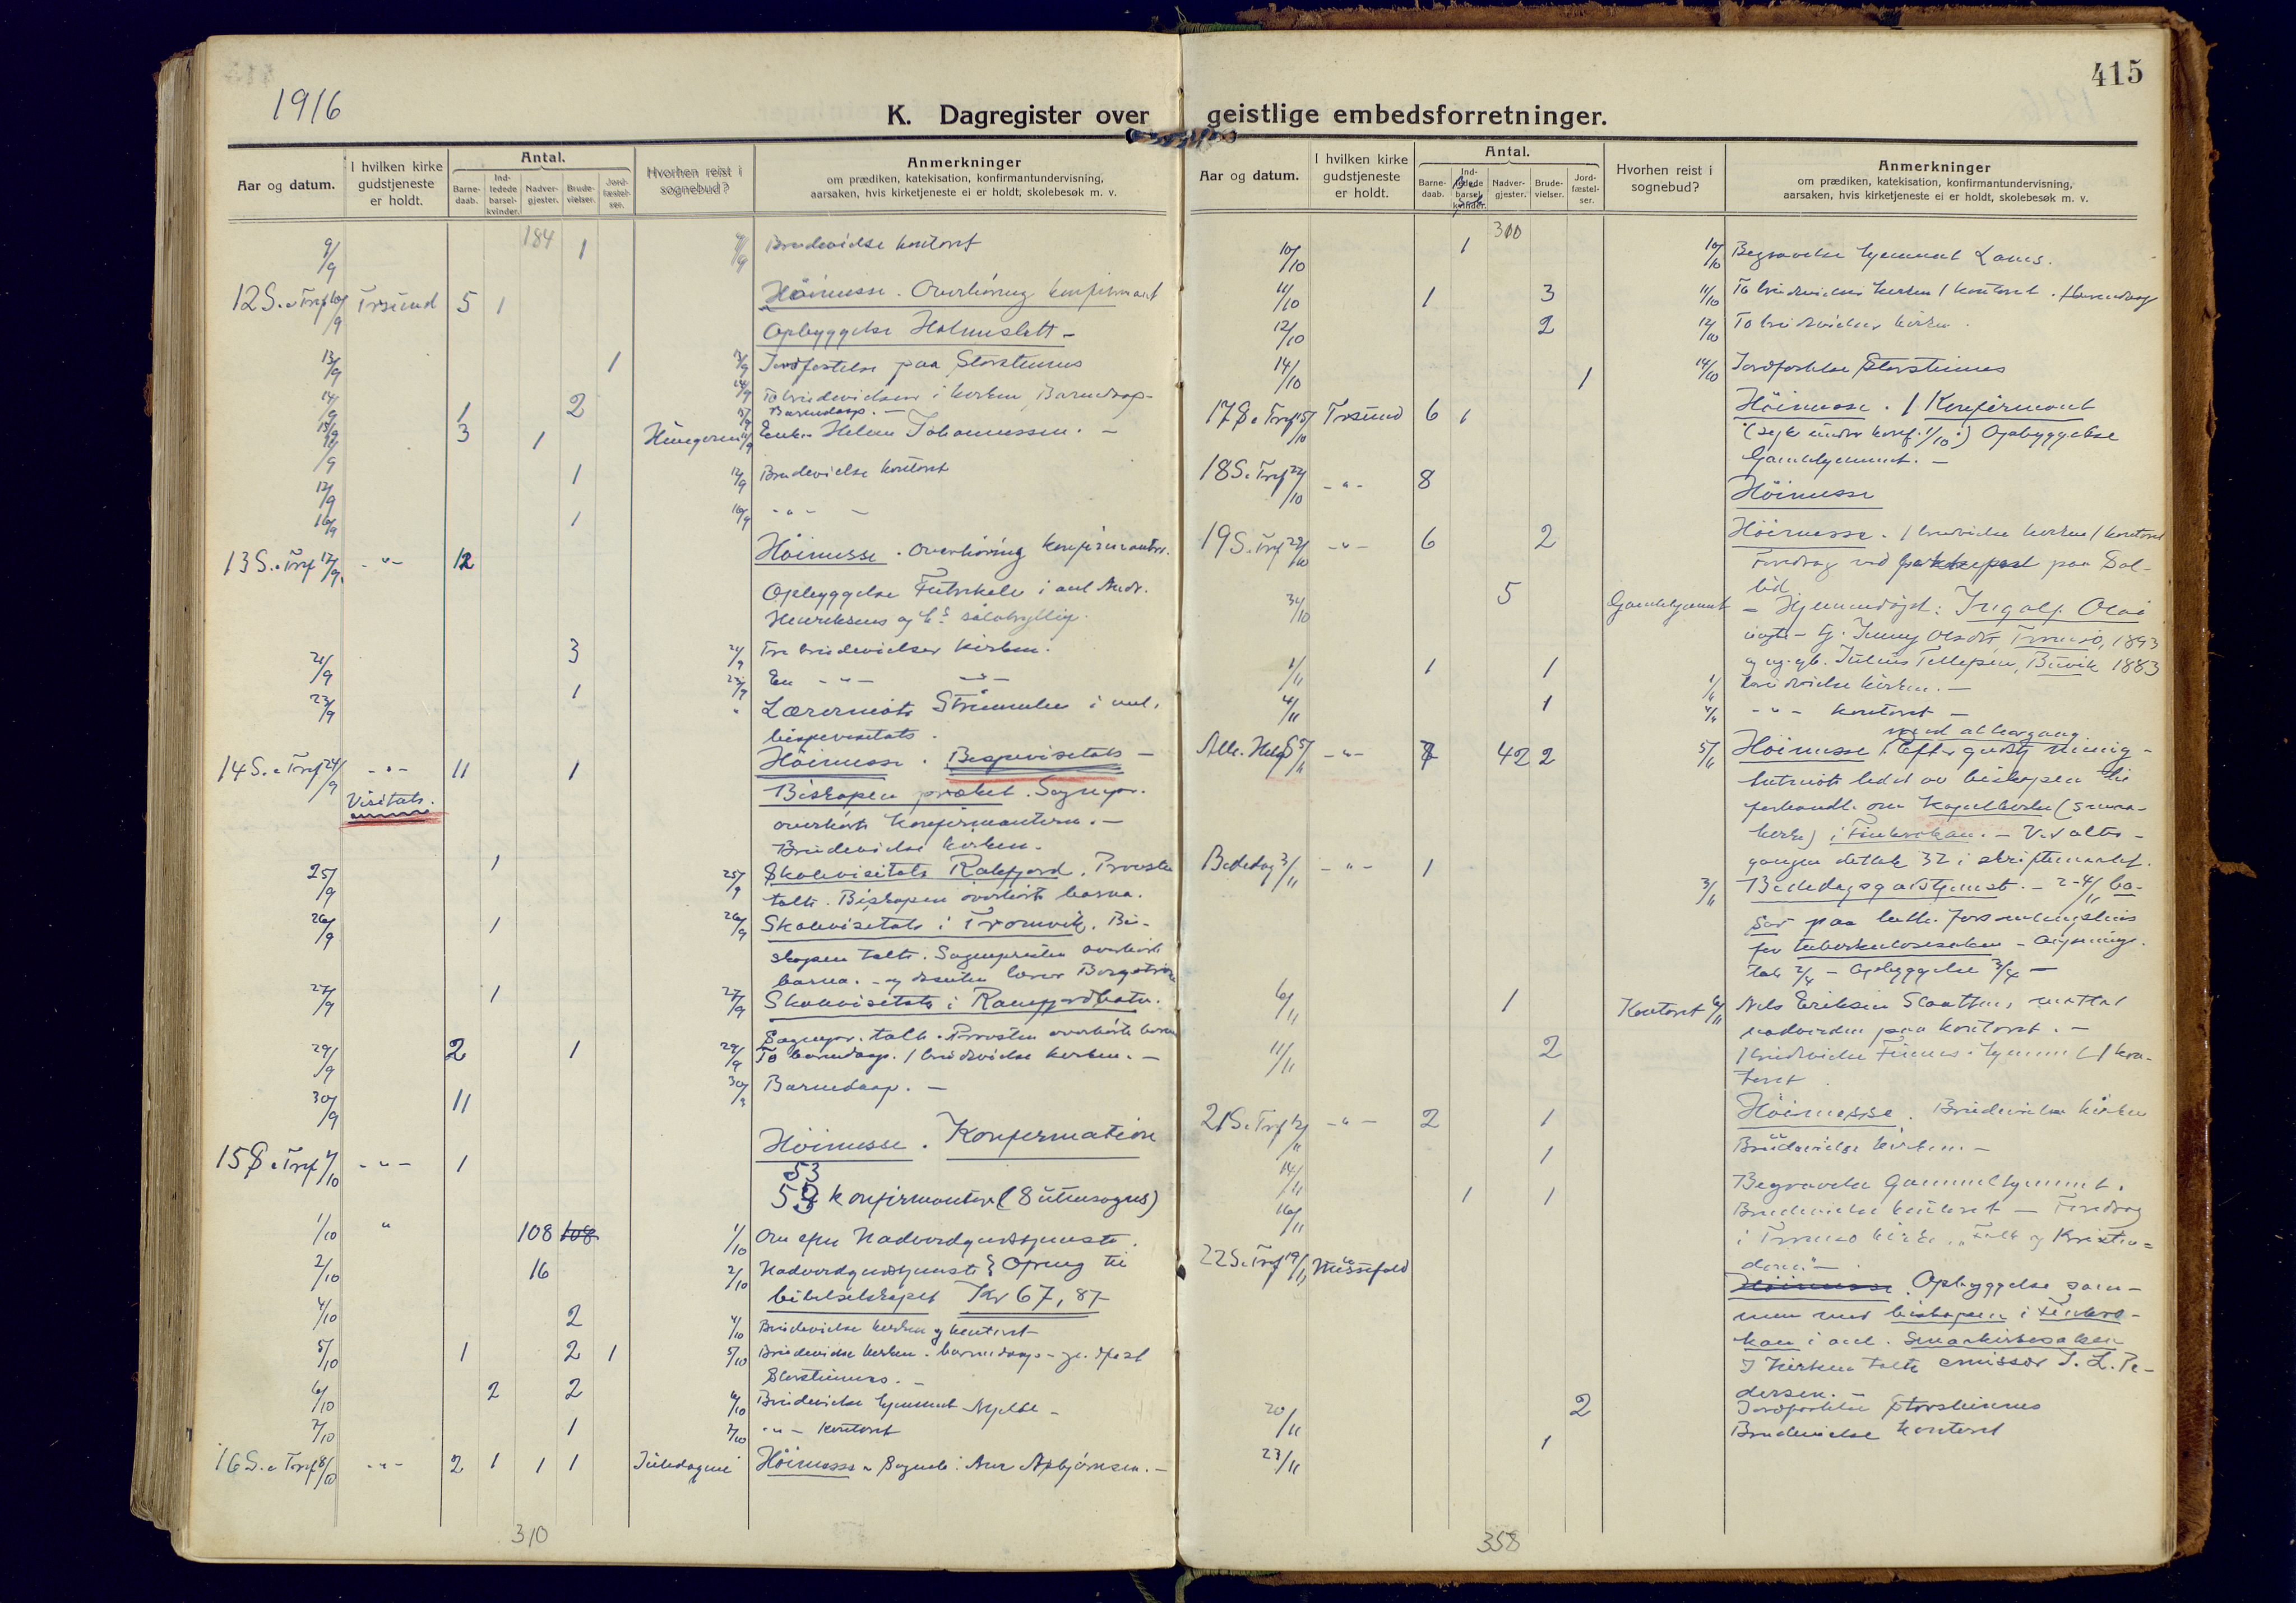 415
1916
K. Dagregister over geistlige embedsforretninger.
Aar og datum.
I hvilken kirke gudstjeneste er holdt.
Antal.
Barne-daab.
Ind-ledede barsel-kvinder.
Nadver-gjester.
Brude-vielser.
Jord-fæstel-ser.
Hvorhen reist i sognebud?
Anmerkninger
om prædiken, katekisation, konfirmantundervisning,
aarsaken, hvis kirketjeneste ei er holdt, skolebesøk m. v.
184
9/9 1 Brudevielse kontoret
12 S. e Tref 10/9 Trsund 5 1 Höimesse. Overhöring konfirmant
Opbyggelse Holmeslett -
13/9 1 13/9 Jordfestelse paa Storsteinnes
14/9 1 2 14/9 To brudevielser i kirken, Barnedaap -
15/9 3 15/9 Barnedaap. -
11/9 1 11/9 Enke Helene Johannessen. -
12/9 1 12/9 Brudevielse kontoret
16/9 1 16/9 - " -
13 S. e Tref 17/9 - " - 12 Höimesse. Overhöring konfirmanter.
Opbyggelse i anl Andr.
Henriksens og
21/9 3 21/9 Tre brudevielser kirken.
23/9 1 23/9 En - " - - " -
" Lærermöte i anl.
bispevisitats.
14 S. e Tref 24/9 - " - 11 1 Höimesse. Bispevisitats -
Visitats.
Biskopen præket. Sognepr.
overhörte konfirmanterne. -
Brudevielse kirken.
25/9 1 25/9 Skolevisitats Kalfjord. Provsten
talte. Biskopen overhörte barna.
26/9 1 26/9 Skolevisitats i Tromvik. Bi-
skopen talte. Sognepresten overhörte
barna. - og lærer Bergström
27/9 1 27/9 Skolevisitats i Ramfjordbotn.
Sognepr. talte. Provsten overhörte barna
29/9 2 1 29/9 To barnedaap. 1 brudevielse kirken. -
30/9 11 30/9 Barnedaap. -
15 S e Tref 1/10 - " - 1 Höimesse. Konfirmation
53
53 konfirmanter (8 utensogns)
1/10 " 108 108 1/10 Om eften Nadverdgudstjeneste.
2/10 16 2/10 Nadverdgudstjeneste Ofring til
bibelselskapet Kr 67,87
4/10 2 4/10 Brudevielse kirken og kontoret
5/10 1 2 1 5/10 Brudevielse kirken. barnedaap -
Storsteinnes. -
6/10 2 2 6/10 Brudevielse hjemmet -
7/10 1 7/10 - " - kontoret
16 S. e Tref 8/10 - " - 2 1 1 1 Höimesse
310
Aar og datum.
I hvilken kirke gudstjeneste er holdt.
Antal.
Barne-daab.
Ind-ledede barsel-kvinder.
Nadver-gjester.
Brude-vielser.
Jord-fæstel-ser.
Hvorhen reist i sognebud?
Anmerkninger
om prædiken, katekisation, konfirmantundervisning,
aarsaken, hvis kirketjeneste ei er holdt, skolebesøk m. v.
310
10/10 1 10/10 Begravelse hjemmet
11/10 1 3 11/10 To brudevielser kirken 1 kontoret. Barnedaap
12/10 2 12/10 To brudevielser kirken.
14/10 1 14/10 Jordfestelse Storsteinnes
17 S e Tref 15/10 Trsund 6 1 Höimesse. 1 Konfirmant
(syk under konf. 1/10) Opbyggelse
Gamlehjemmet. -
18 S. e Tref 22/10 - " - 8 Höimesse
19 S. e Tref 29/10 - " - 6 2 Höimesse. 1 brudevielse kirken 1 kontoret
Foredrag ved paa Sol-
lid
31/10 5 Gamlehjemmet - Hjemmedöpt: Ingolf Olai
Jenny Olsdtr Tromsö, 1893
Julius Tellefsen, Buvik 1883
1/11 1 1 1/11 brudvielse kirken. -
4/11 1 4/11 - " - kontoret -
med altergang
Alle. Helg S 5/11 - " - 7 42 2 5/11 Höimesse. Efter gudstj menig-
hetmöte ledet av biskopen til
forhandl. om Kapelkirke (smaa-
kirke) i Finkroken. - Ved alter-
gangen deltok 32 i skriftemaalet.
Bededag 3/11 - " - 1 3/11 Bededagsgudstjenest. - 2-4/11 ba-
sar paa luth. forsamlingshus
for tuberkulosesaken - aapnings-
tale 2/11 - Opbyggelse -
6/11 1 Kontoret 6/11 Nils Eriksen Slaatten, mottar
nadverden paa kontoret. -
11/11 2 1 brudvielse hjemmet 1 kon-
toret.
21 S. e Tref 12/11 - " - 2 1 Höimesse. Brudevielse kirken
14/11 1 Brudevielse kirken. -
16/11 1 1 Begravelse Gammelhjemmet.
Brudevielse kontoret - Foredrag
i Tromsö kirke. "Folk og Kristen-
dom" -
22 S. e Tref 19/11 Messefald Höimesse. Opbyggelse sam-
men med biskopen i Finkro-
ken i anl. Smaakirkesaken
I kirken talte emissær J. L. Pe-
dersen. -
20/11 2 Jordfestelse Storsteinnes
23/11 1 Brudevielse kontoret
358